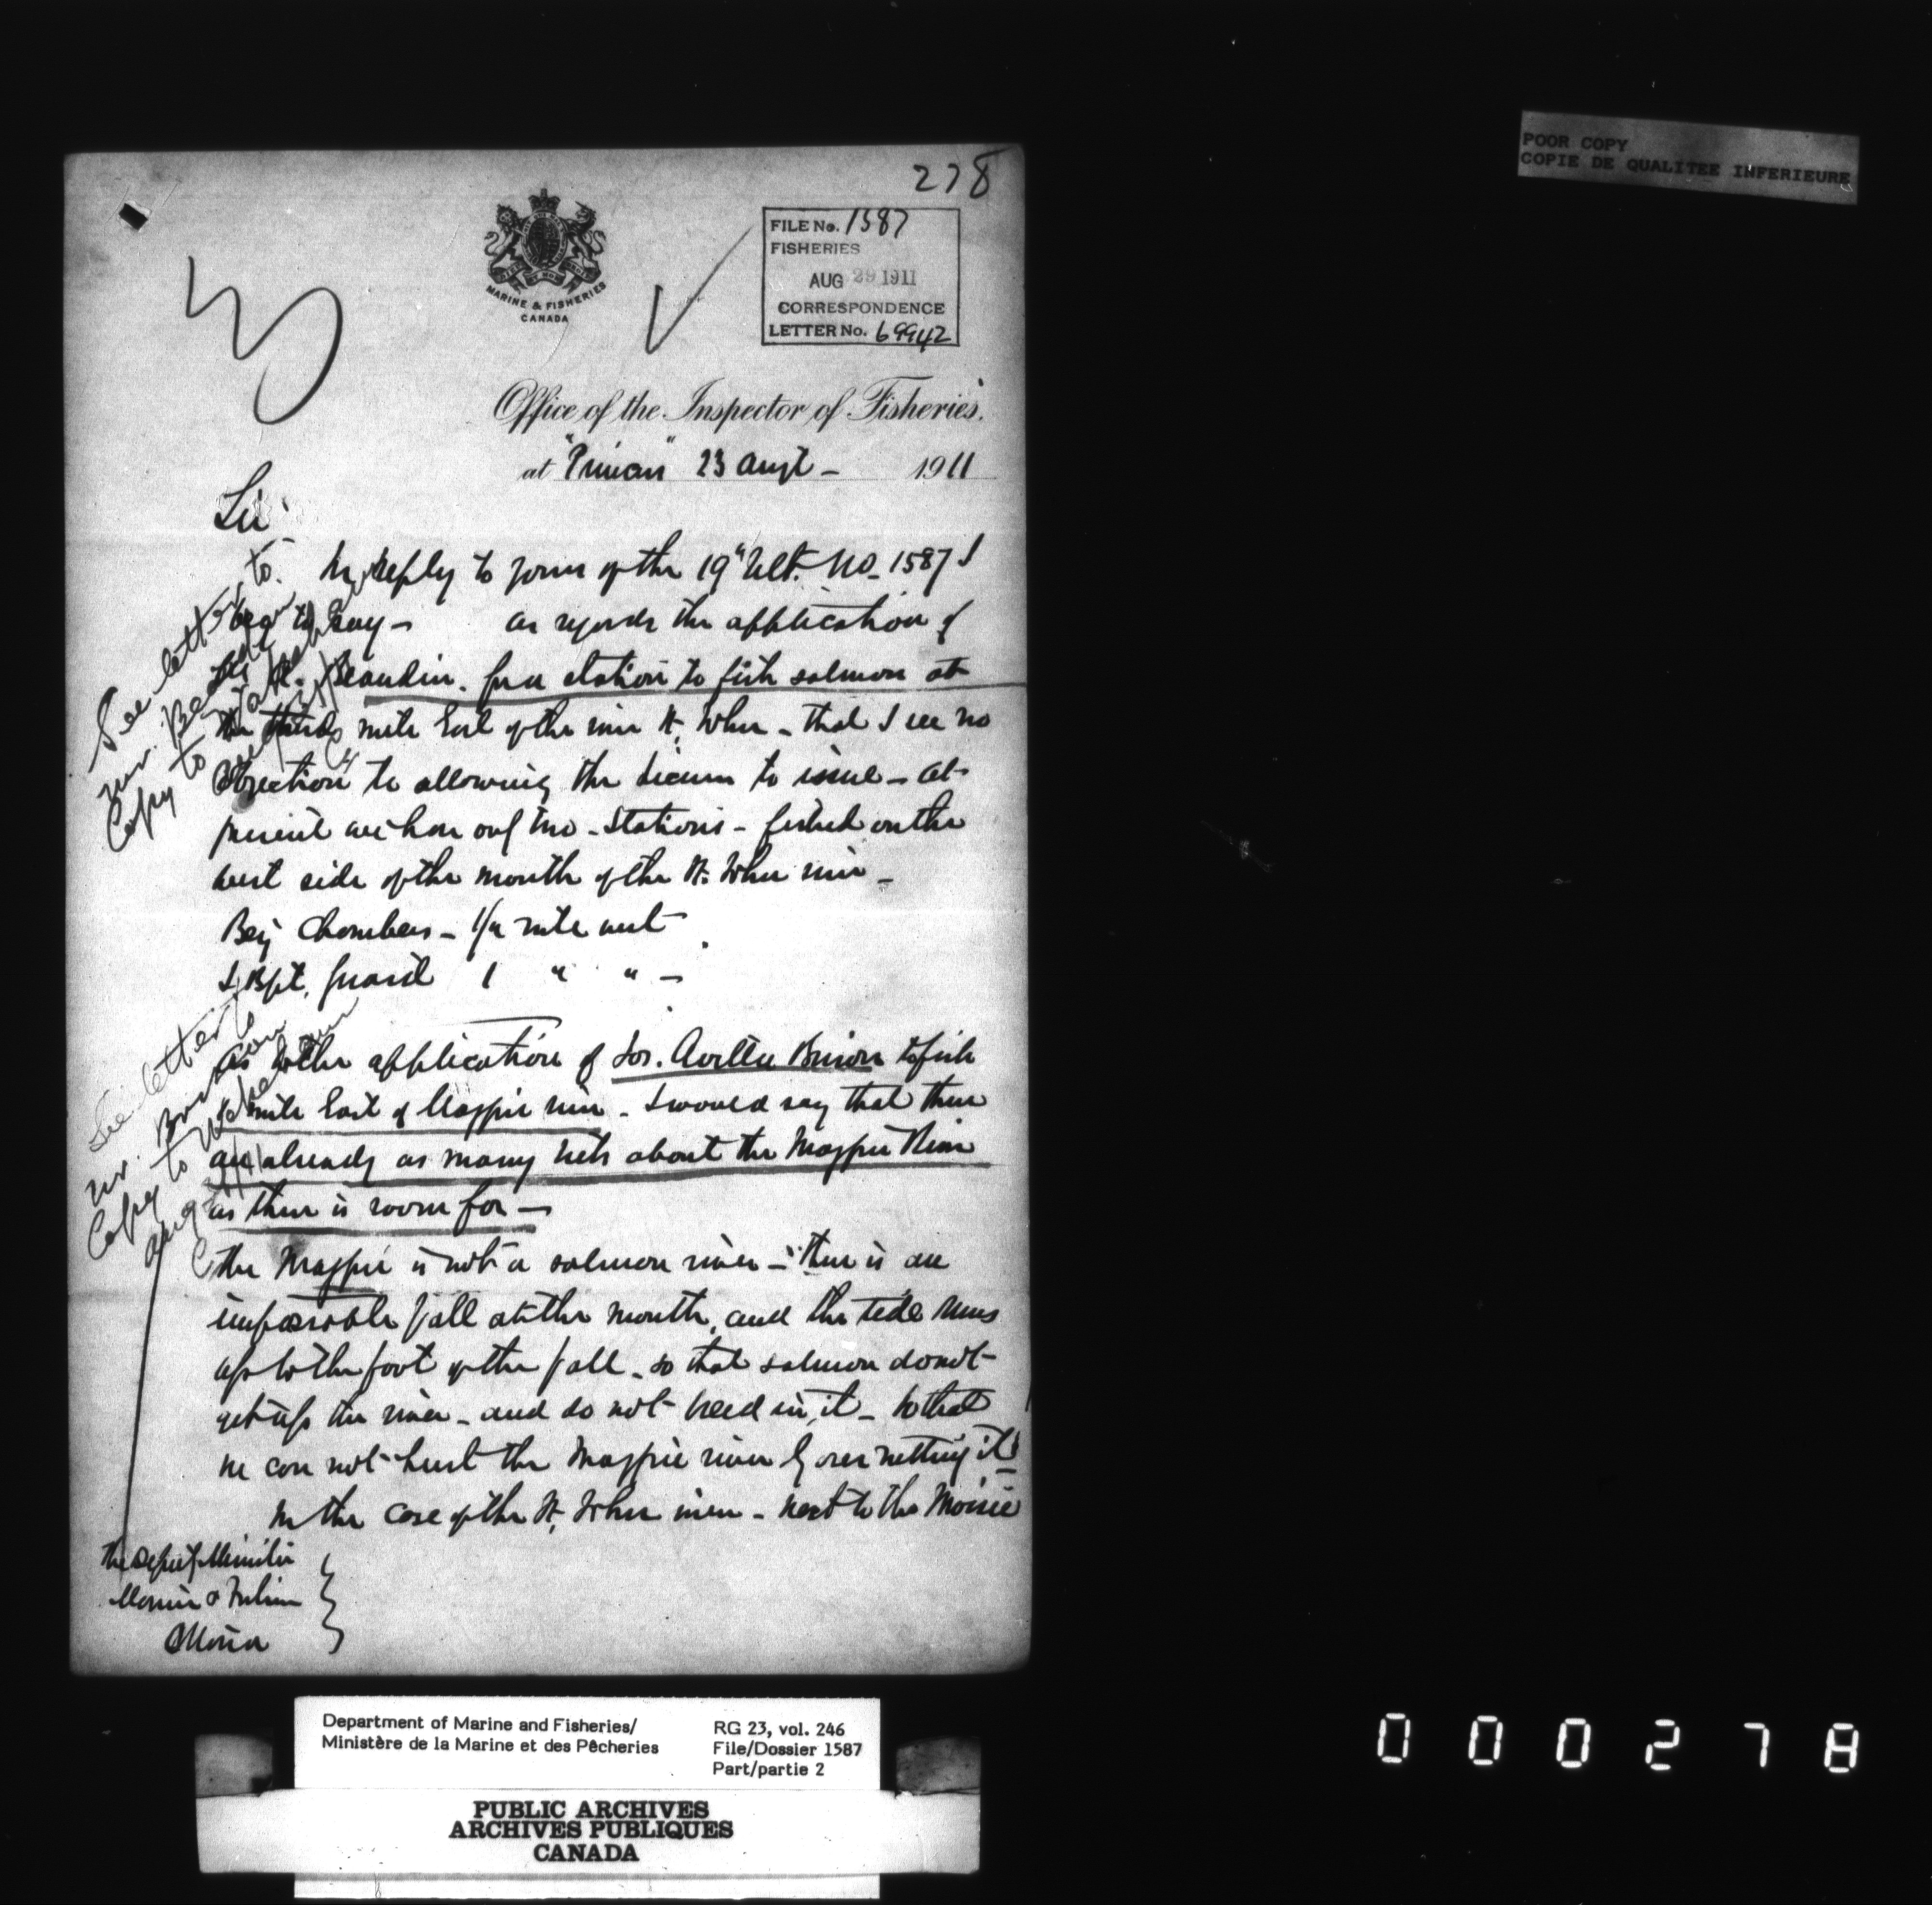 278
POOR COPY
COPIE DE QUALITEE INFERIEURE
MARINE & FISHERIES
CANADA
FILE No. 1587
FISHERIES
AUG 29 1911
CORRESPONDENCE
LETTER No. 69942
Office of the Inspector of Fisheries.
at 23 Augt - 1911
Sir
In reply to yours of the 19" Ult. No. 1587 I
beg to say - as regards the application of
Beaudin. for a station to fish salmon at
the mile East of the river St. John - that I see no
objection to allowing the License to issue - at
present we have only two - stations - fished on the
west side of the mouth of the St. John river -
Benj Chambers - 1/4 mile west
J. Bpt. Girard 1 " " -
As to the application of Jos. Avilla Brison to fish
mile East of Magpie river - I would say that there
are already as many nets about the Magpie River
as there is room for -
the Magpie is not a salmon river - there is an
impassable fall at the mouth, and the tide runs
up to the foot of the fall - so that salmon do not
get up the river - and do not breed in it - so that
we can not hurt the Magpie river by over netting it
In the case of the St. John river - next to the Moisie
See letter to
Mr. Beaudin
Copy to
See letter to
Mr.
Copy to
Aug
The Deputy Minister
Marine & Fisheries
Ottawa
Department of Marine and Fisheries/
Ministère de la Marine et des Pêcheries
RG 23, vol. 246
File/Dossier 1587
Part/partie 2
PUBLIC ARCHIVES
ARCHIVES PUBLIQUES
CANADA
000278